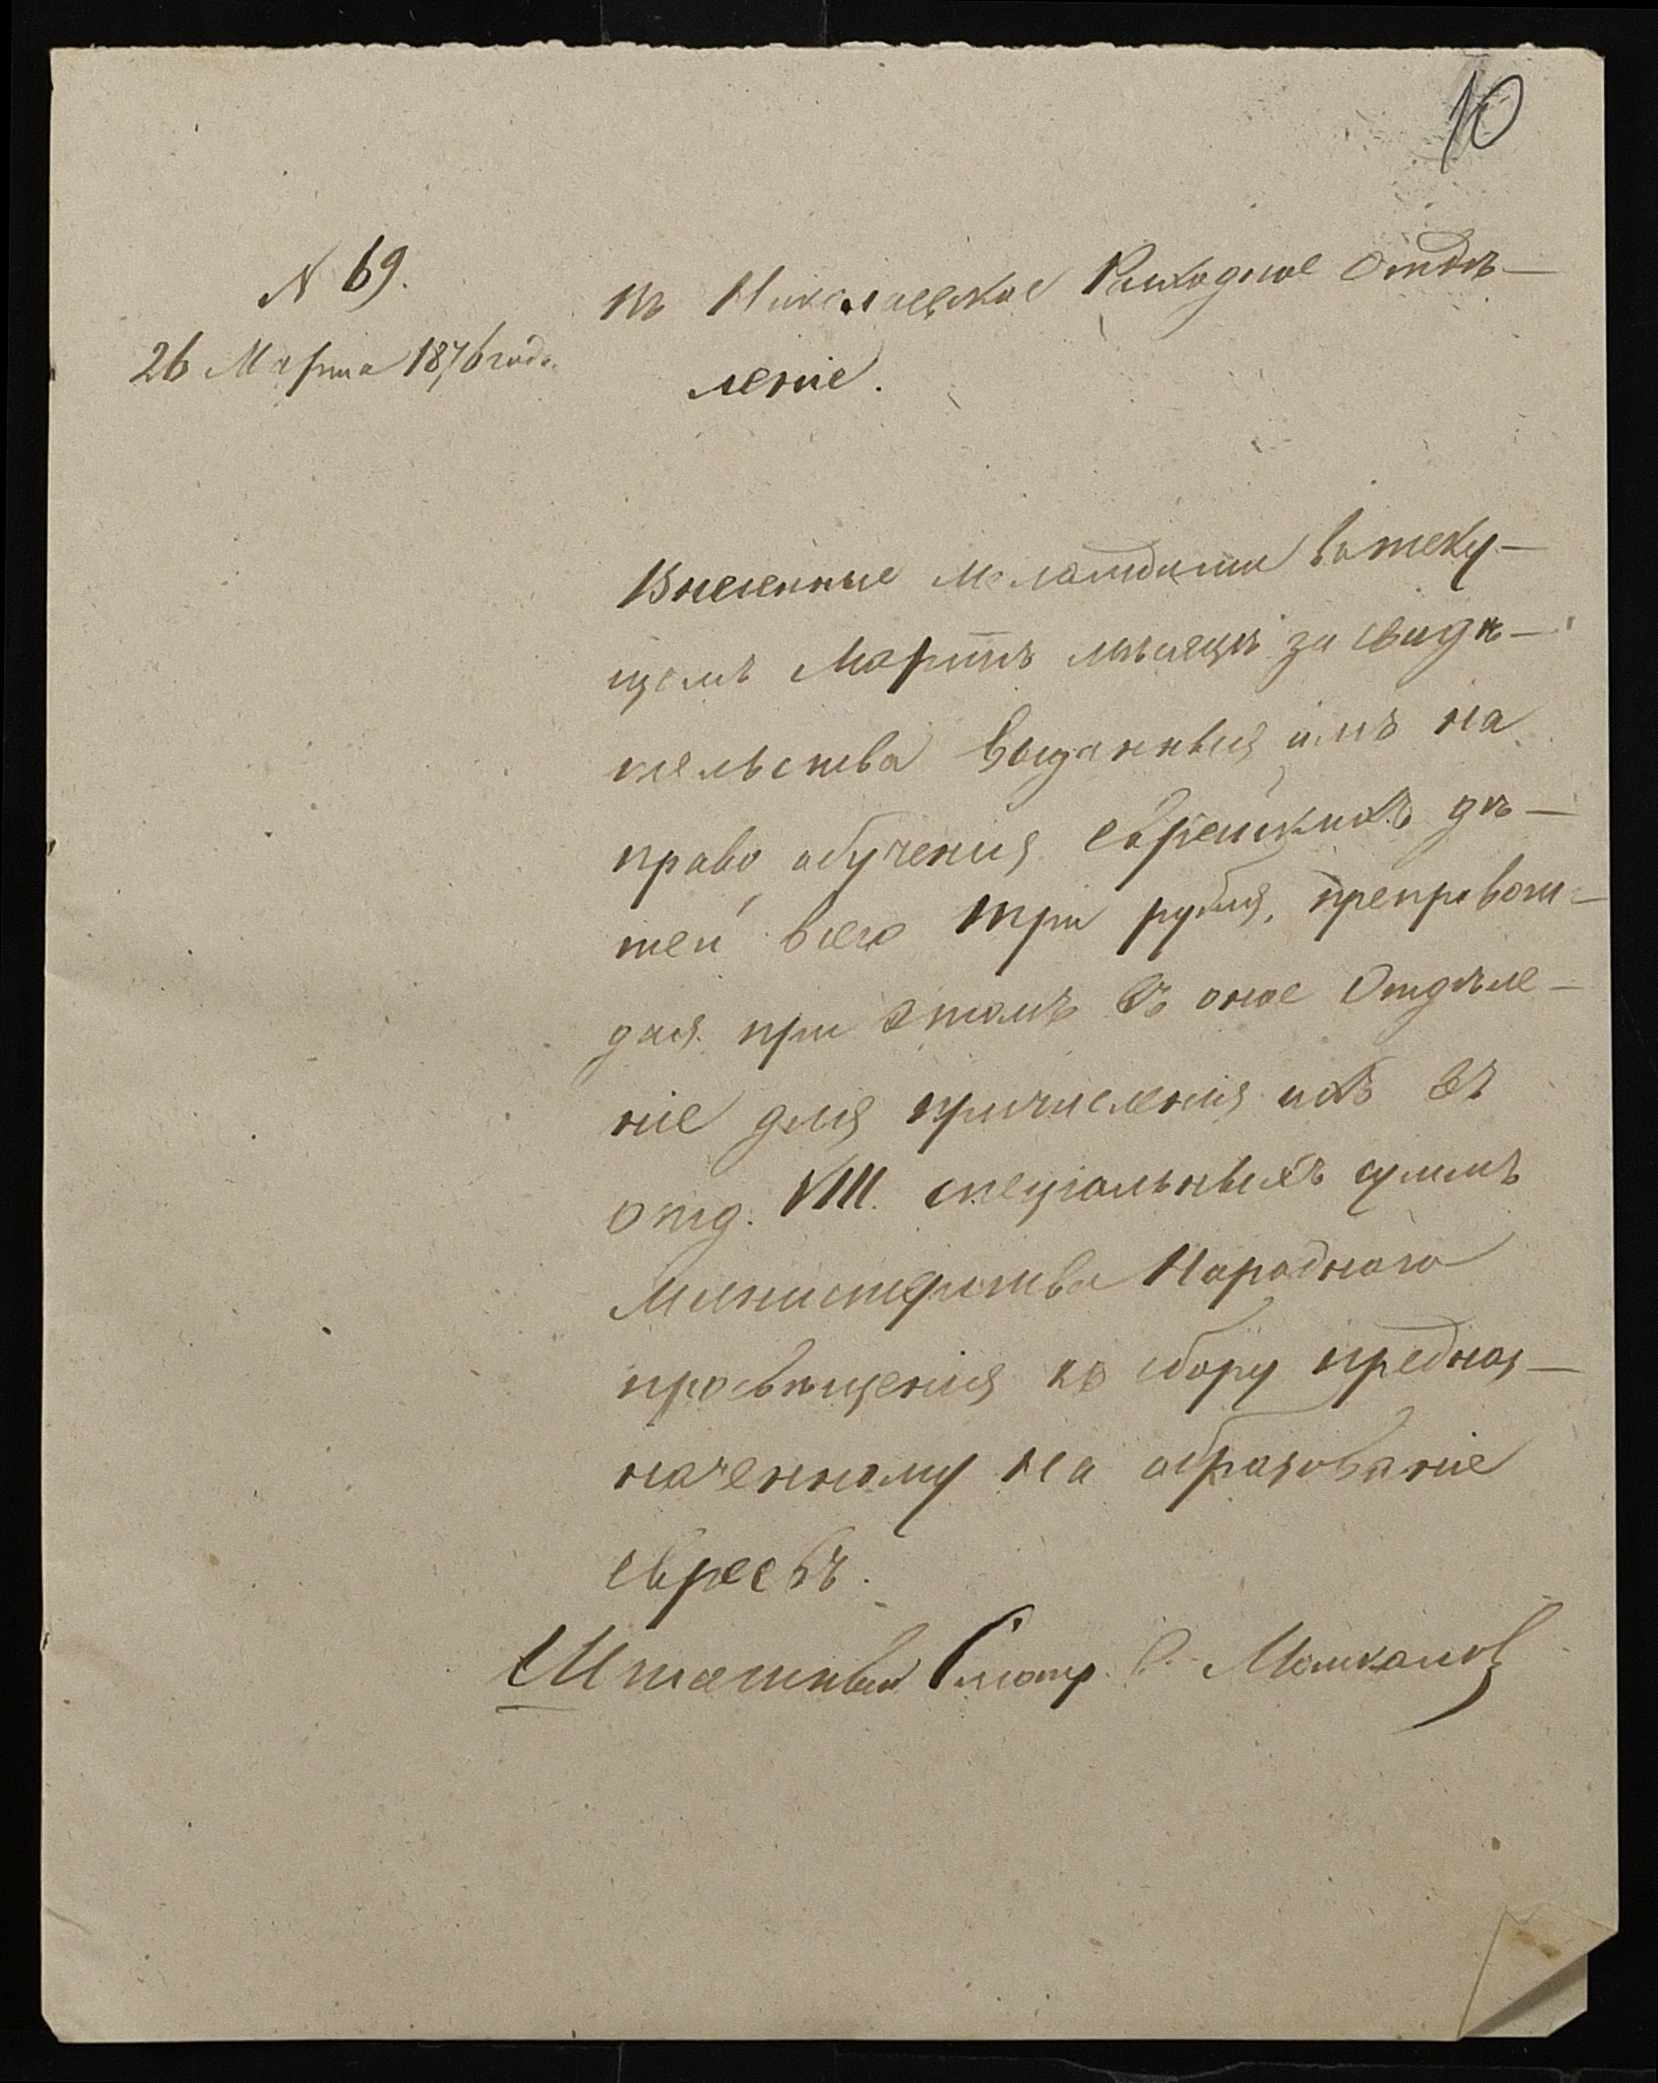 10
№ 69.
26 Марта 1876 года.
Въ Николаевское Расходное Отдѣ-
леніе.
Внесенные Меламдами въ теку-
щемъ Мартѣ мѣсяцѣ за свидѣ-
тельства выданныя имъ на
право обученія еврейскихъ дѣ-
тей всего три рубля, препровож-
дая при этомъ въ оное Отдѣле-
ніе для причисленія ихъ въ
отд. VIII. спеціальныхъ суммъ
Министерства Народнаго
просвѣщенія къ сбору предназ-
наченному на образованіе
евреевъ.
Штатный Смотр.